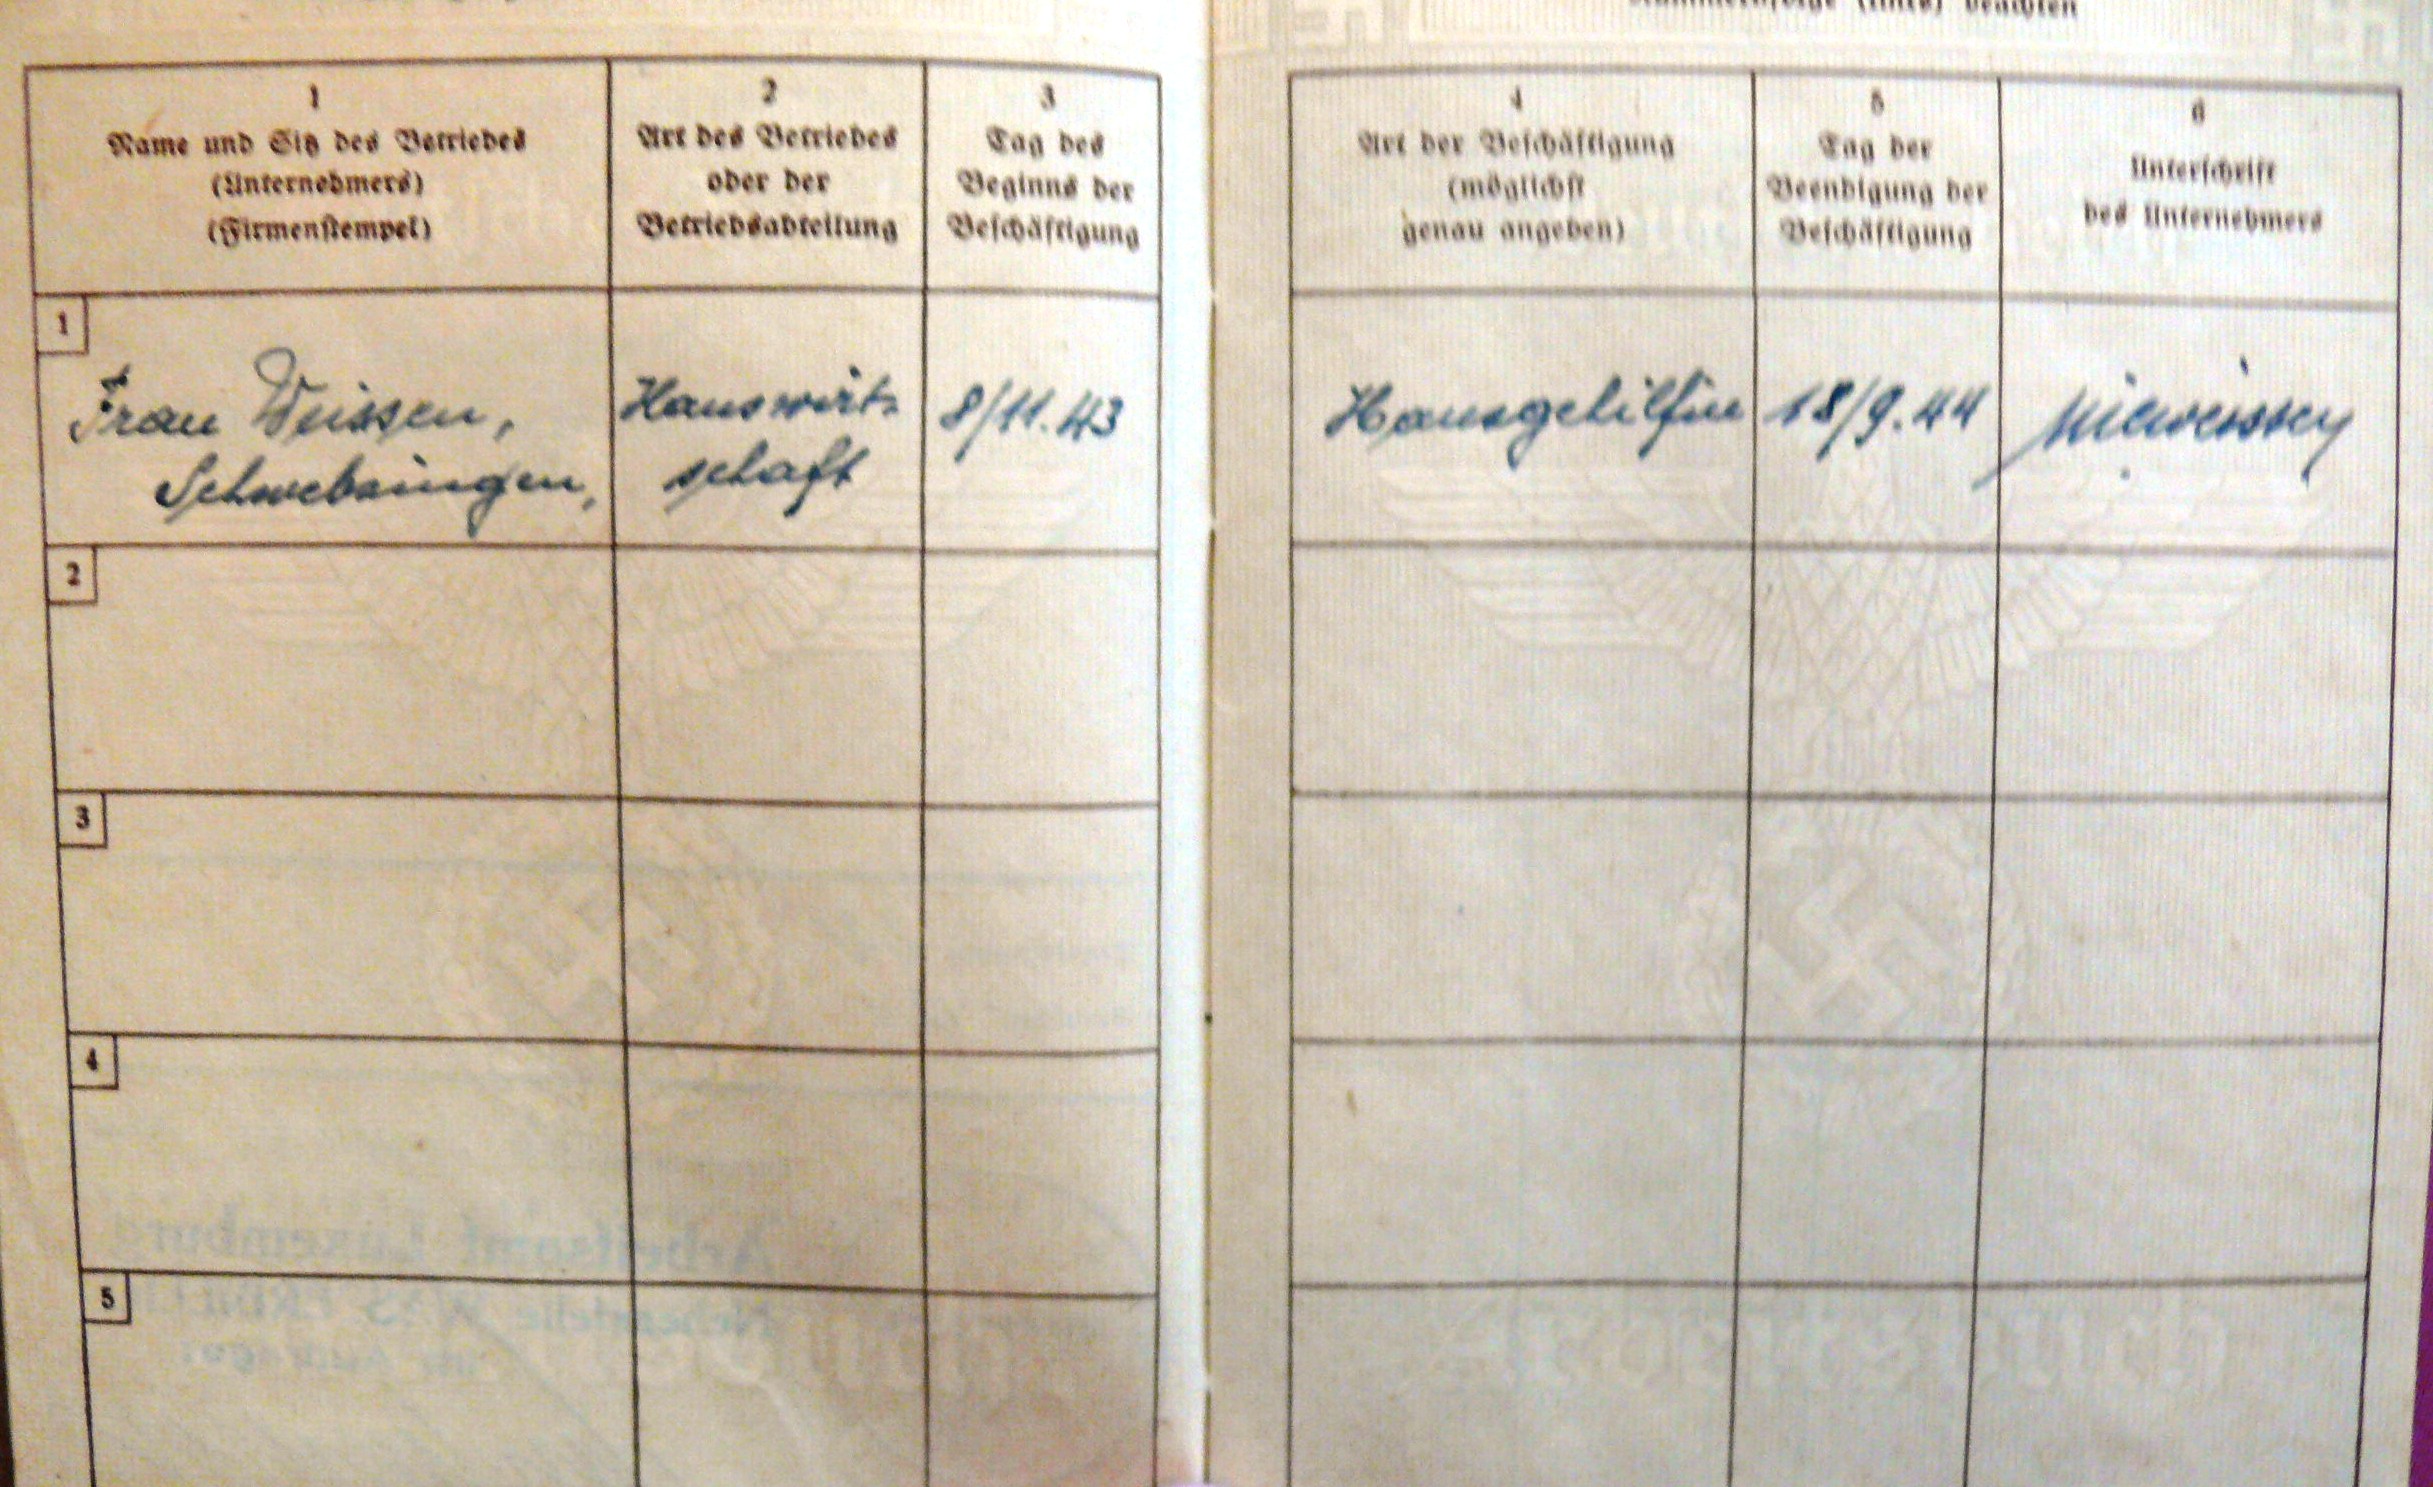 1
Name und Sitz des Betriebes
(Unternehmers)
(Firmenstempel)
2
Art des Betriebes
oder der
Betriebsabteilung
3
Tag des
Beginns der
Beschäftigung
4
Art der Beschäftigung
(möglichst
genau angeben)
5
Tag der
Beendigung der
Beschäftigung
6
Unterschrift
des Unternehmers
1
Frau Weissen,
Schwebsingen,
Hauswirt-
schaft
8/11.43
Hausgehilfin
18/9.44
2
3
4
5
Arbeitsamt Luxemburg
Nebenstelle